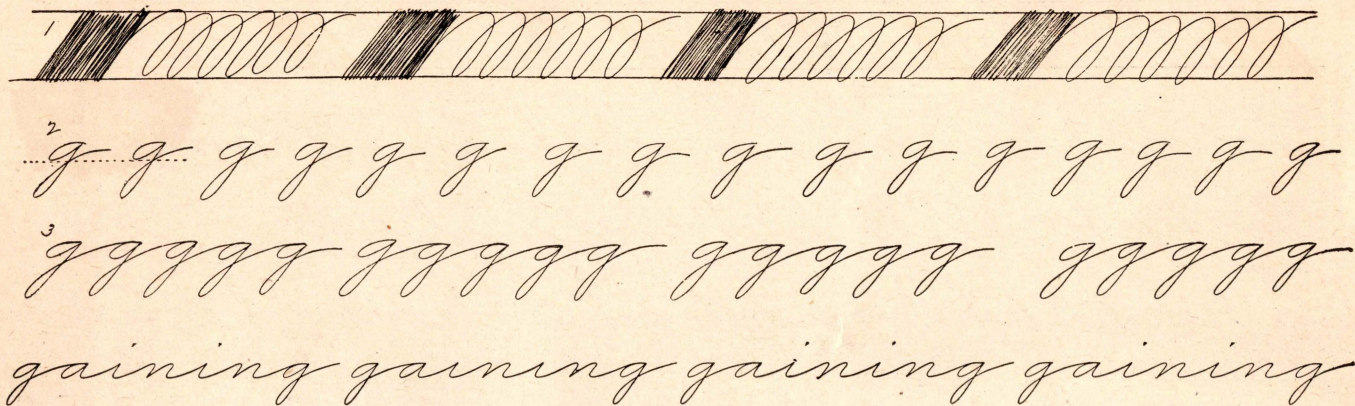 1
2 g g g g g g g g g g g g g g g g
3 ggggg ggggg ggggg ggggg
gaining gaining gaining gaining